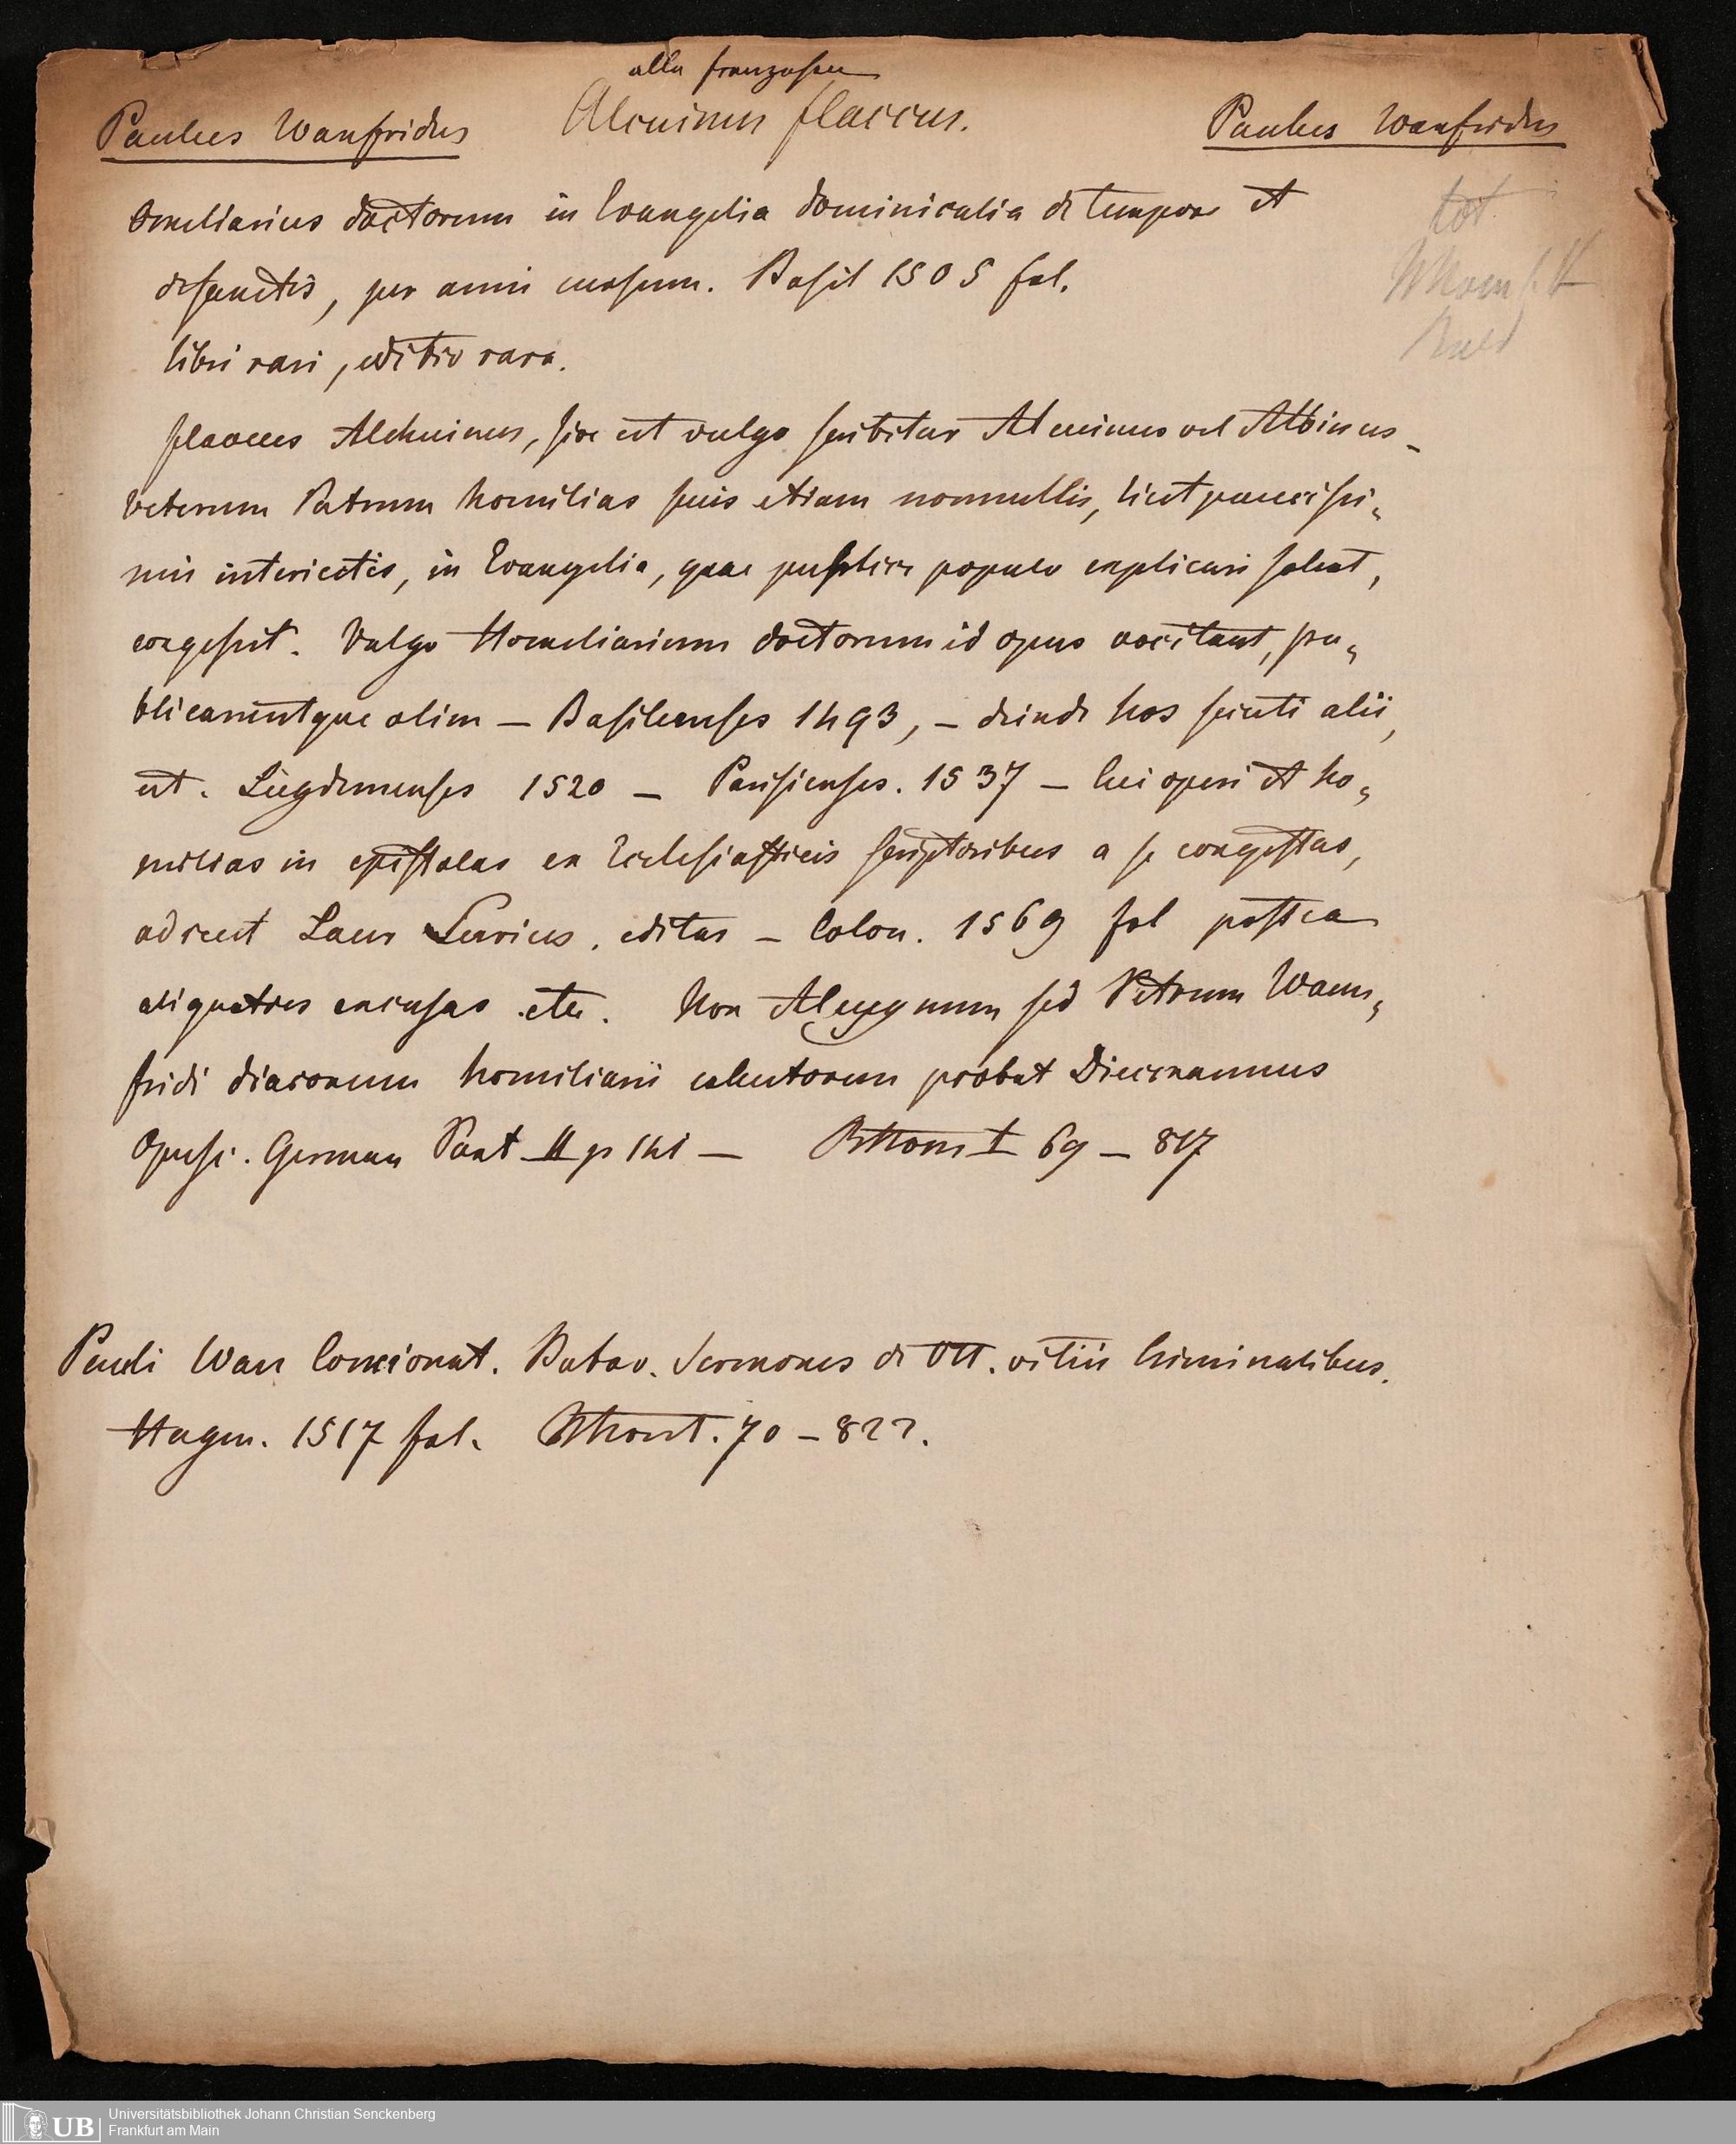 alla franzosen
Paulus Wanfridus Alcuinus flaccus. Paulus Wanfridus
Omeliarius doctorum in Evangelia dominicalia de tempore et
de sanctis, per anni cursum. Basil 1505 fol.
libri rari, editio rara.
flaccus Alchuinus, sive ut vulgo scribitur Alcuinus vel Albinus
veterum Patrum homilias suis etiam nonnullis, licet paucissi„
mis interiectis, in Evangelia, quae publice populo explicari solent,
congessit. Vulgo Homeliarium doctorum id opus vocitant, pu„
blicaruntque olim – Basileenses 1493, – deinde hos secuti alii,
ut. Lugdunenses 1520 – Parisienses. 1537 – Cui operi et ho„
milias in epistolas ex Ecclesiasticis scriptoribus a se congestas,
adiecit Laur Surius, editas – Colon. 1569 fol postea
aliquoties excusas etc. Non sed Petrum Warn„
fridi diaconum homiliarii auctorem probat Diecmannus
Opusc. German Part II p 141 – I 69 – 817
Pauli Wan Concionat. Patav. Sermones de VII. vitiis Criminalibus.
Hagen. 1517 fol. 70 – 822.
tot
UB Universitätsbibliothek Johann Christian Senckenberg
Frankfurt am Main